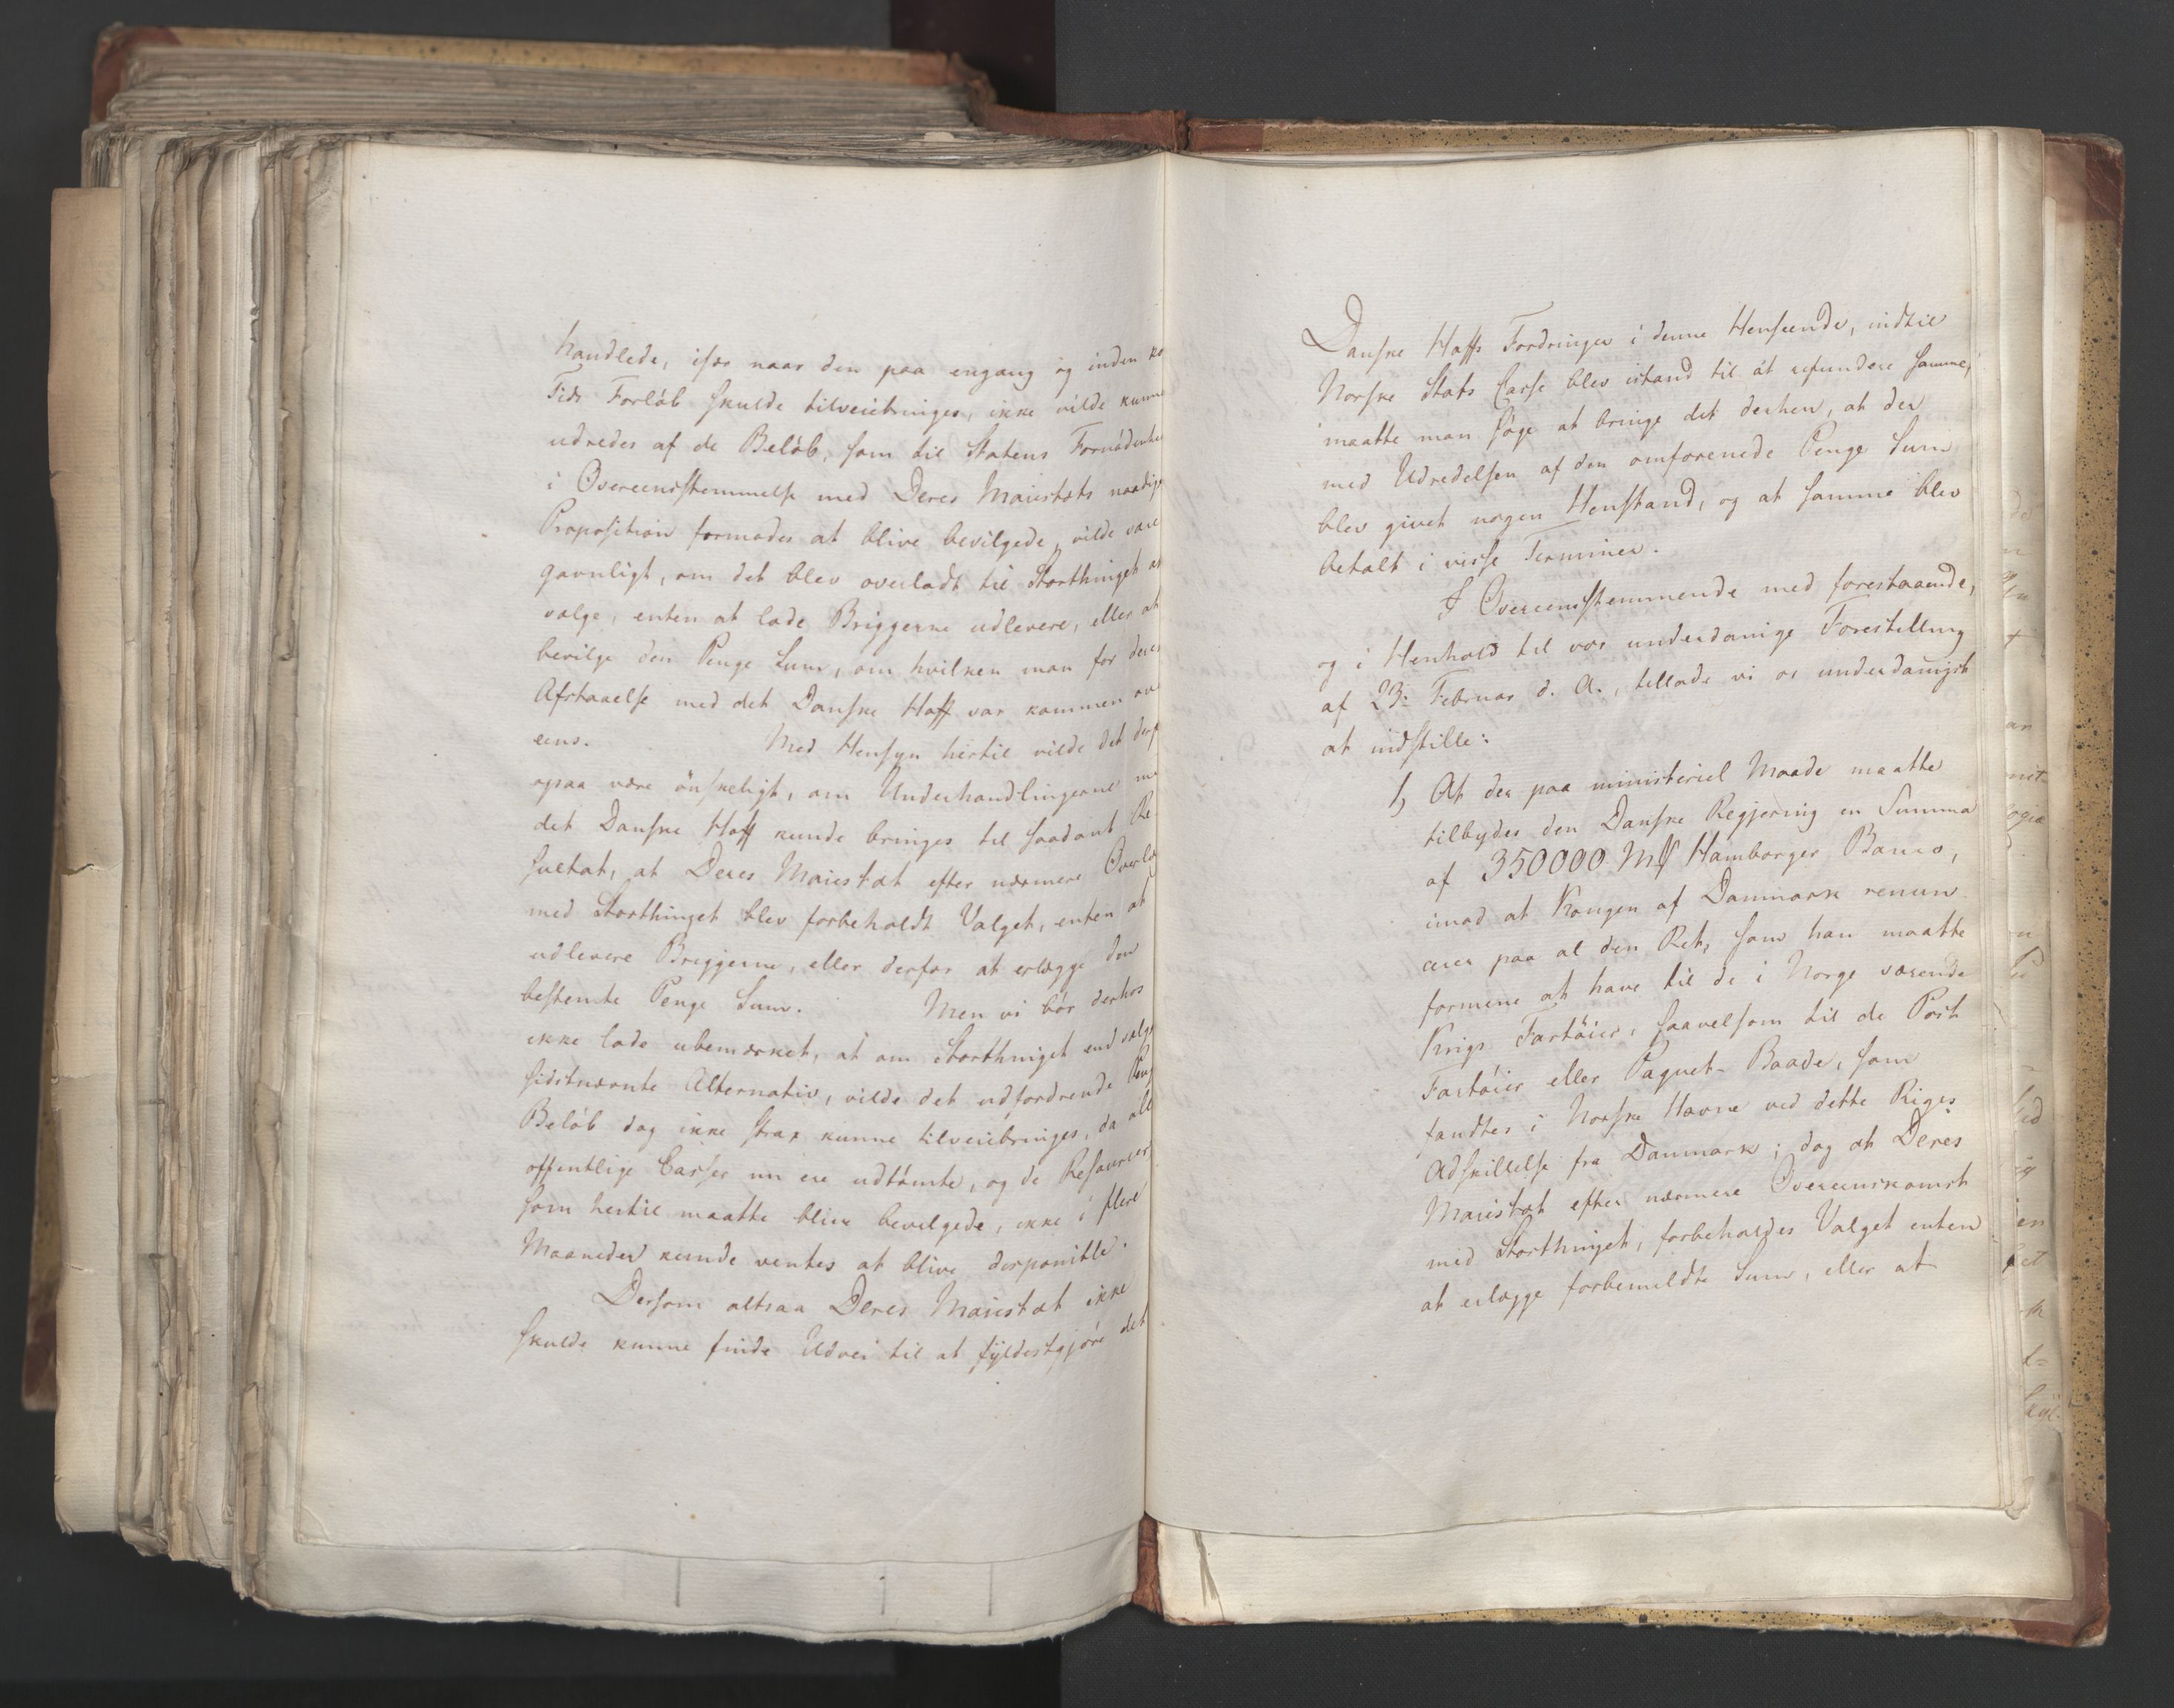 handlede, især naar den paa engang og inden ko
Tids Forløb skulde tilveiebringes, ikke vilde kunne
udredes af de Beløb, som til Statens Fornødenhe
i Overeensstemmelse med Deres Majestæts naadige
Proposition formodes at blive bevilgede, vilde være
gavnligt, om det blev overladt til Storthinget at
vælge, enten at lade Briggerne udlevere, eller at
bevilge den Penge Sum, om hvilken man for deres
Afstaaelse med det Danske Hoff var kommen ove
eens. Med Hensyn hertil vilde det derf
ogsaa være ønskeligt, om Underhandlingerne me
det Danske Hoff kunde bringes til saadant Re-
sultat, at Deres Majestæt efter nærmere Overlæ
med Storthinget blev forbeholdt Valget, enten at
udlevere Briggerne, eller derfor at erlægge den
bestemte Penge Sum. Men vi bør derhos
ikke lade ubemærket, at om Storthinget end valgt
sidstnævnte Alternativ, vilde det udfordrende Peng
Beløb dog ikke strax kunne tilveiebringes, da alle
offentlige Casser nu ere udtømte, og de Resourcer
som hertil maatte blive bevilgede, ikke i flere
Maaneder kunde ventes at blive disponible.
Dersom altsaa Deres Majestæt ikke
skulde kunne finde Udvei til at fyldestgjøre det
Danske Hoffs Fordringer i denne Henseende, indtil
Norske Stats Casse blev istand til at refundere samme,
maatte man søge at bringe det derhen, at der
med Udredelsen af den omforenede Penge Sum
blev givet nogen Henstand, og at samme blev
betalt i visse Terminer.
I Overeensstemmende med forestaaende,
og i Henhold til vor underdanige Forestilling
af 23: Februar d. A., tillade vi os underdanigst
at indstille:
1, At der paa ministeriel Maade maatte
tilbydes den Danske Regjering en Summa
af 350000 Mk Hamborger Banco,
imod at Kongen af Danmark renun
cerer paa al den Ret, som han maatte
formene at have til de i Norge værende
Krigs Fartøier, saavelsom til de Post
Fartøier eller Paquet-Baade, som
fandtes i Norske Havne ved dette Riges
Adskillelse fra Danmark; dog at Deres
Majestæt efter nærmere Overeenskomst
med Storthinget, forbeholdes Valget enten
at erlægge forbemeldte Sum, eller at